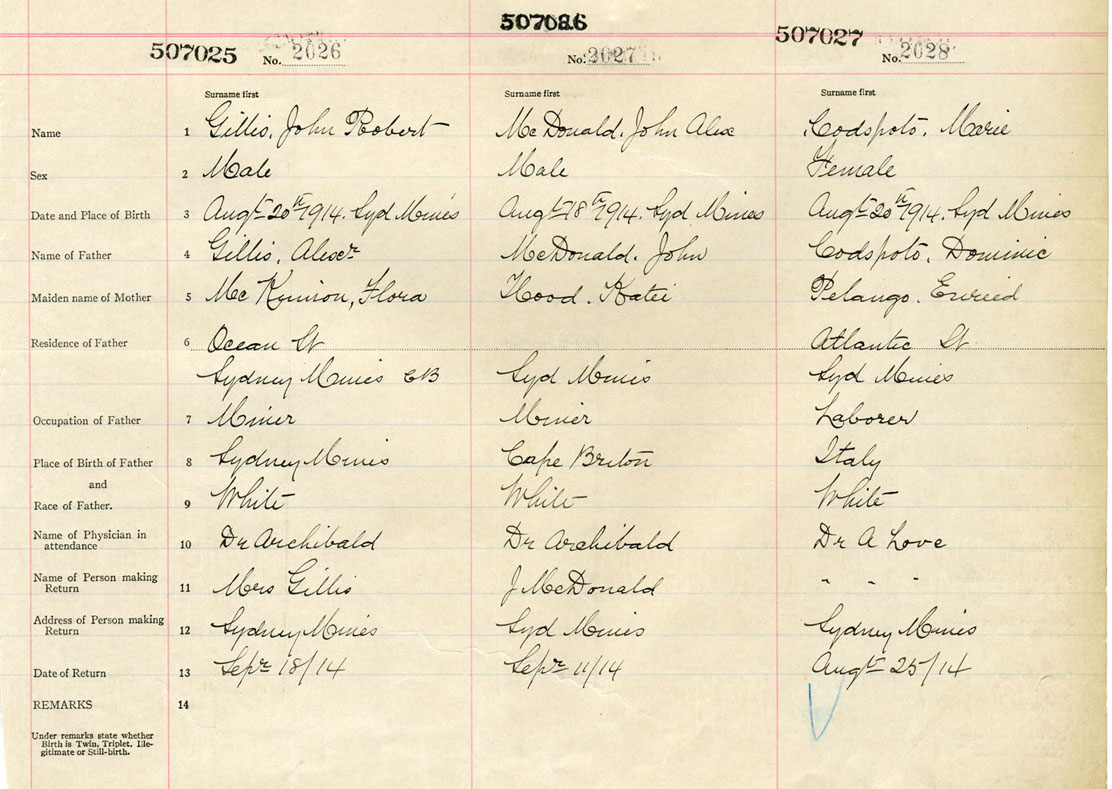 507025 No. 2026 507026 No. 2027 507027 No. 2028
Surname first Surname first Surname first
Name 1 Gillis, John Robert McDonald, John Alex Codspoto, Marie
Sex 2 Male Male Female
Date and Place of Birth 3 Augt 20th 1914. Syd Mines Augt 18th 1914. Syd Mines Augt 20th 1914. Syd Mines
Name of Father 4 Gillis, Alexr McDonald, John Codspoto, Dominic
Maiden name of Mother 5 Mc Kinnon, Flora Hood. Katie Pelango.
Residence of Father 6 Ocean St Atlantic St
Sydney Mines CB Syd Mines Syd Mines
Occupation of Father 7 Miner Miner Laborer
Place of Birth of Father 8 Sydney Mines Cape Breton Italy
and
Race of Father. 9 White White White
Name of Physician in
attendance 10 Dr Archibald Dr Archibald Dr A Love
Name of Person making
Return 11 Mrs Gillis J McDonald " " "
Address of Person making
Return 12 Sydney Mines Syd Mines Sydney Mines
Date of Return 13 Sepr 18/14 Sepr 11/14 Augt 25/14
REMARKS 14
Under remarks state whether
Birth is Twin, Triplet, Ille-
gitimate or Still-birth.